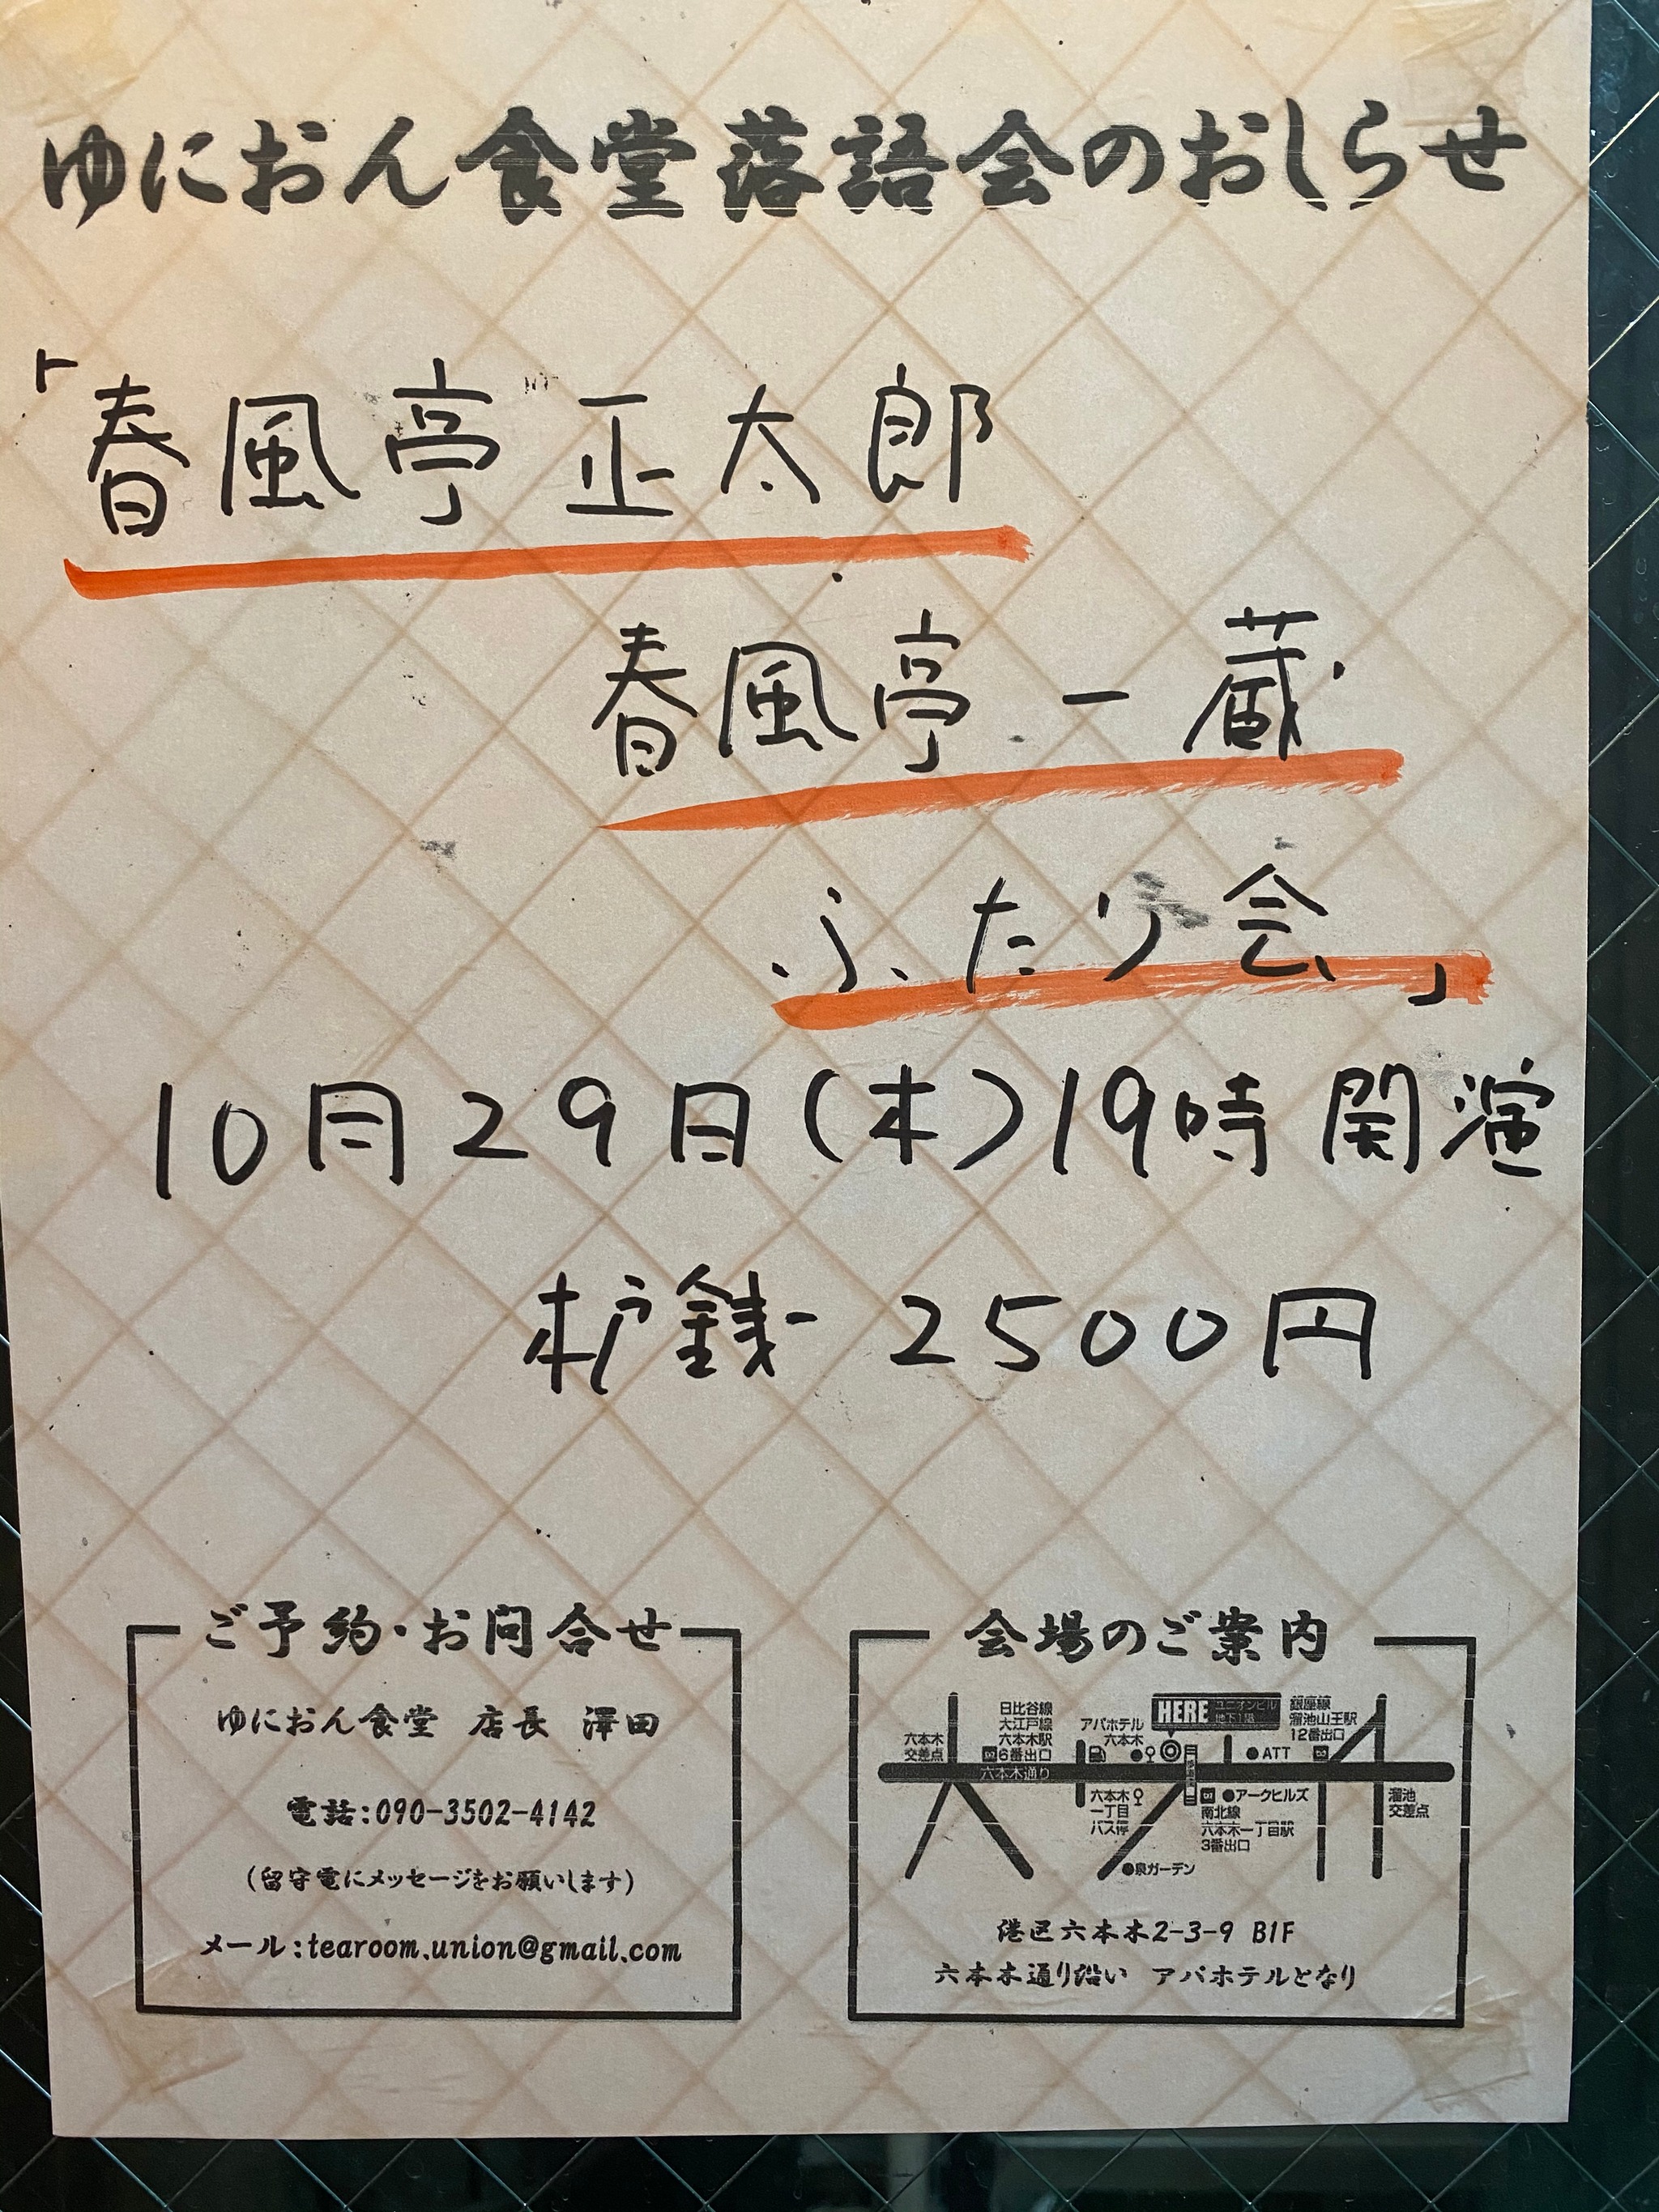 ゆにおん食堂落語会のおしらせ
「春風亭正太郎
春風亭一蔵
ふたり会」
10月29日(木)19時開演
木戸銭 2500円
ご予約・お問合せ
ゆにおん食堂 店長 澤田
電話:090-3502-4142
(留守電にメッセージをお願いします)
メール:tearoom.union@gmail.com
会場のご案内
六本木
交差点
日比谷線
大江戸線
六本木駅
6番出口
アパホテル
六本木
HERE ユニオンビル
地下1階
銀座線
溜池山王駅
12番出口
●ATT
六本木通り
六本木
一丁目
バス停
●アークヒルズ
南北線
六本木一丁目駅
3番出口
溜池
交差点
●泉ガーデン
港区六本木2-3-9 B1F
六本木通り沿い アパホテルとなり